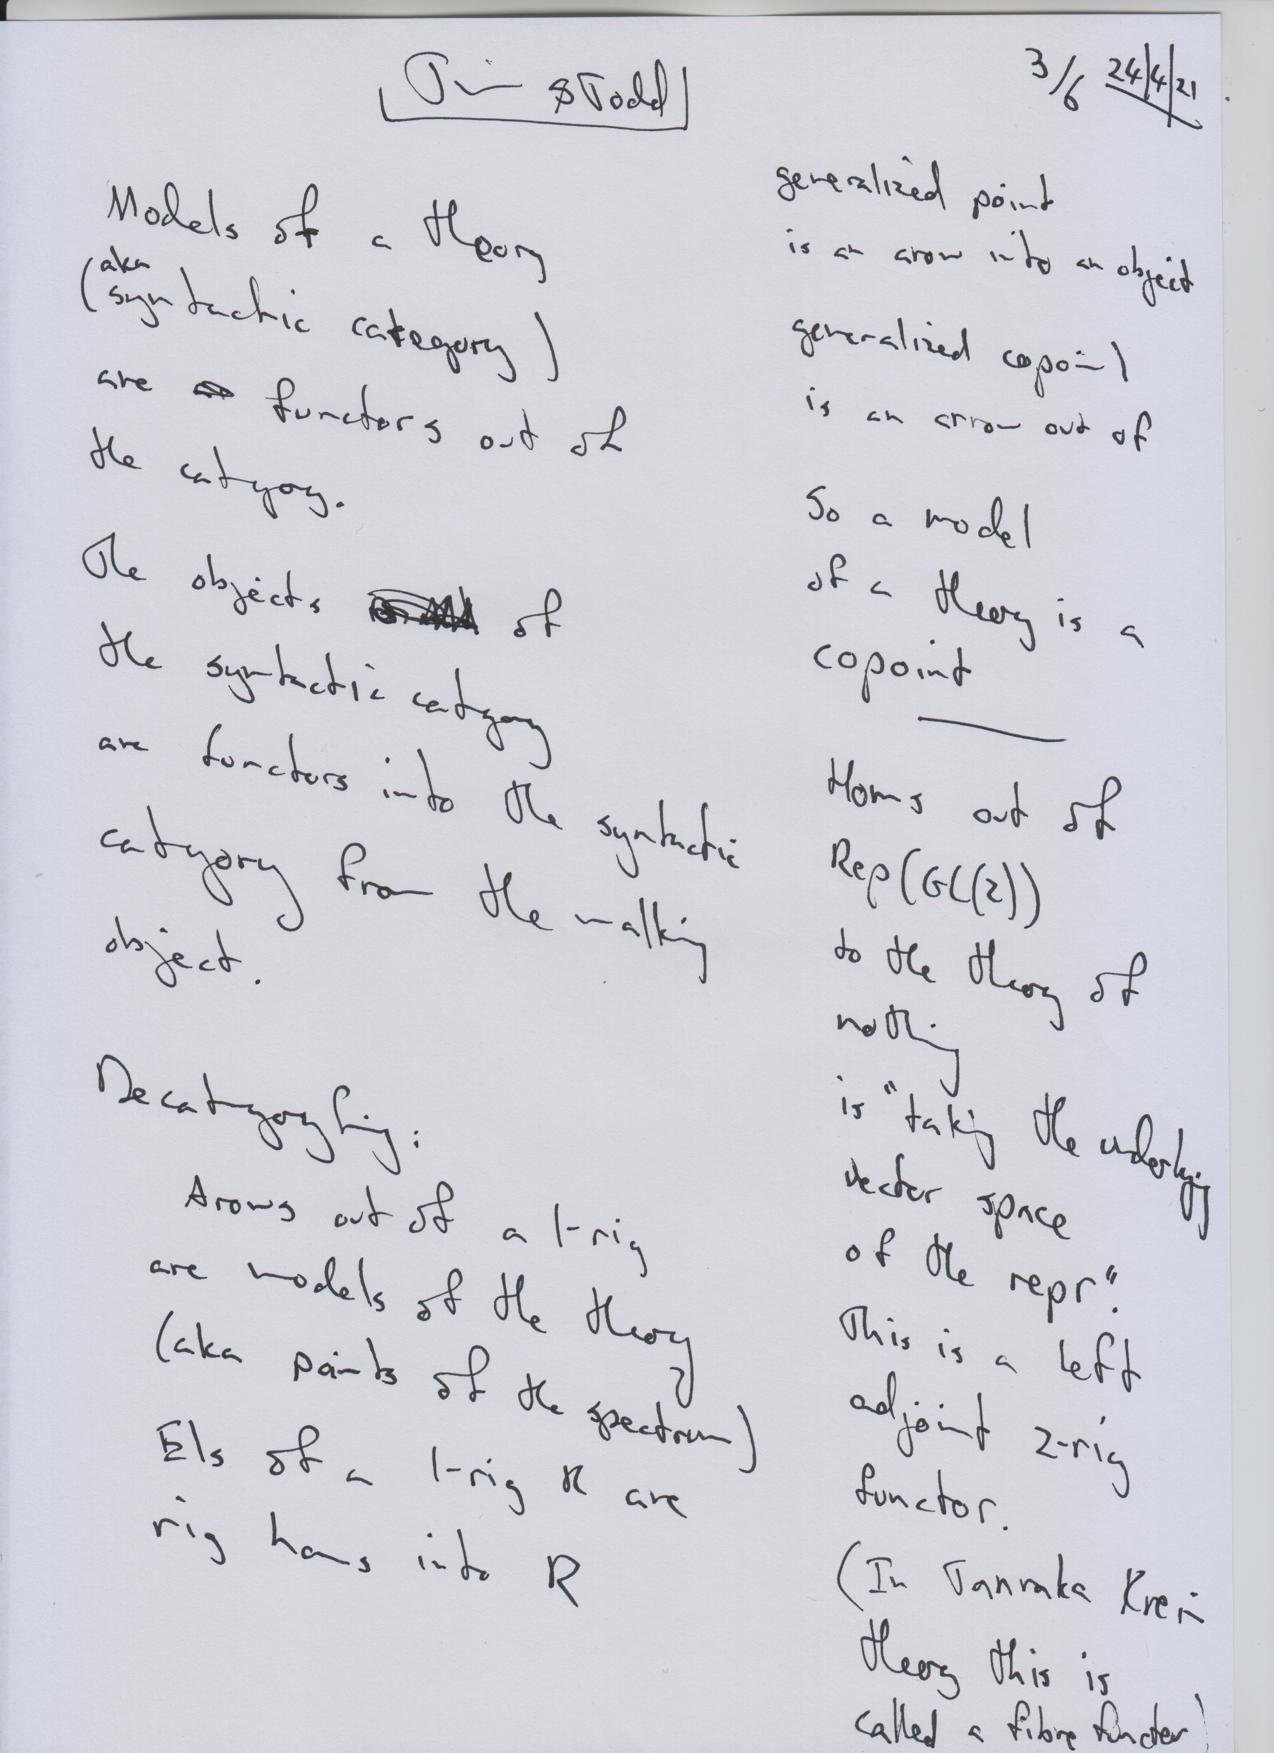 Jim & Todd
3/6 24/4/21
Models of a theory
(aka
syntactic category)
are functors out of
the category.
The objects of
the syntactic category
are functors into the syntactic
category from the walking
object.
Decategorifying:
Arows out of a 1-rig
are models of the theory
(aka points of the spectrum)
Els of a 1-rig R are
rig homs into R
generalized point
is an arow into an object
generalized copoint
is an arrow out of
So a model
of a theory is a
copoint
Homs out of
Rep(GL(2))
to the theory of
nothing
is "taking the underlying
vector space
of the repr".
This is a left
adjoint 2-rig
functor.
(In Tannaka Krein
theory this is
called a fibre functor)